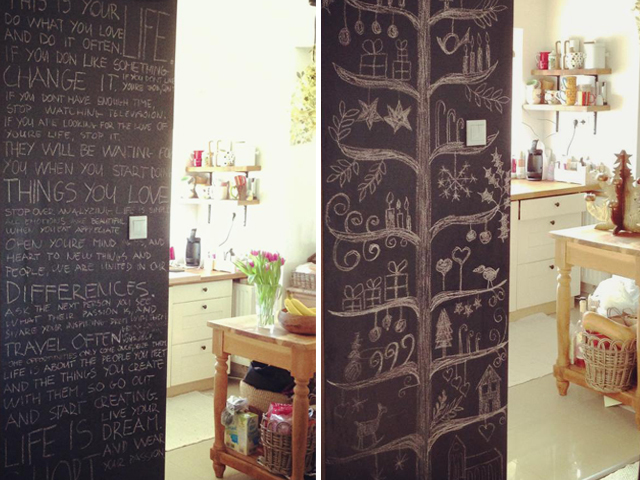 THIS IS YOUR LIFE.
DO WHAT YOU LOVE
AND DO IT OFTEN
IF YOU DON LIKE SOMETHING
CHANGE IT. IF YOU
IF YOU DONT HAVE ENOUGH TIME,
STOP WATCHING TELEVISION,
IF YOU ARE LOOKING FOR THE LOVE OF
YOURE LIFE, STOP IT.
THEY WILL BE WAITING FOR
YOU WHEN YOU START DOING
THINGS YOU LOVE
STOP OVER ANALYZING LIFE IS SIMPLE
ALL EMOTIONS ARE BEAUTIFUL
WHEN YOU EAT APPRECIATE
OPEN YOURE MIND AND
HEART TO NEW THINGS AND
PEOPLE, WE ARE UNITED IN OUR
DIFFERENCES.
ASK THE NEXT PERSON YOU SEE
WHAT THEIR PASSION IS, AND
SHARE YOUR INSPIRING
TRAVEL OFTEN
LIFE IS ABOUT THE PEOPLE YOU MEET
AND THE THINGS YOU CREATE
WITH THEM, SO GO OUT
AND START CREATING
LIFE IS SHORT
LIVE YOUR
DREAM.
AND WEAR
YOUR PASSION